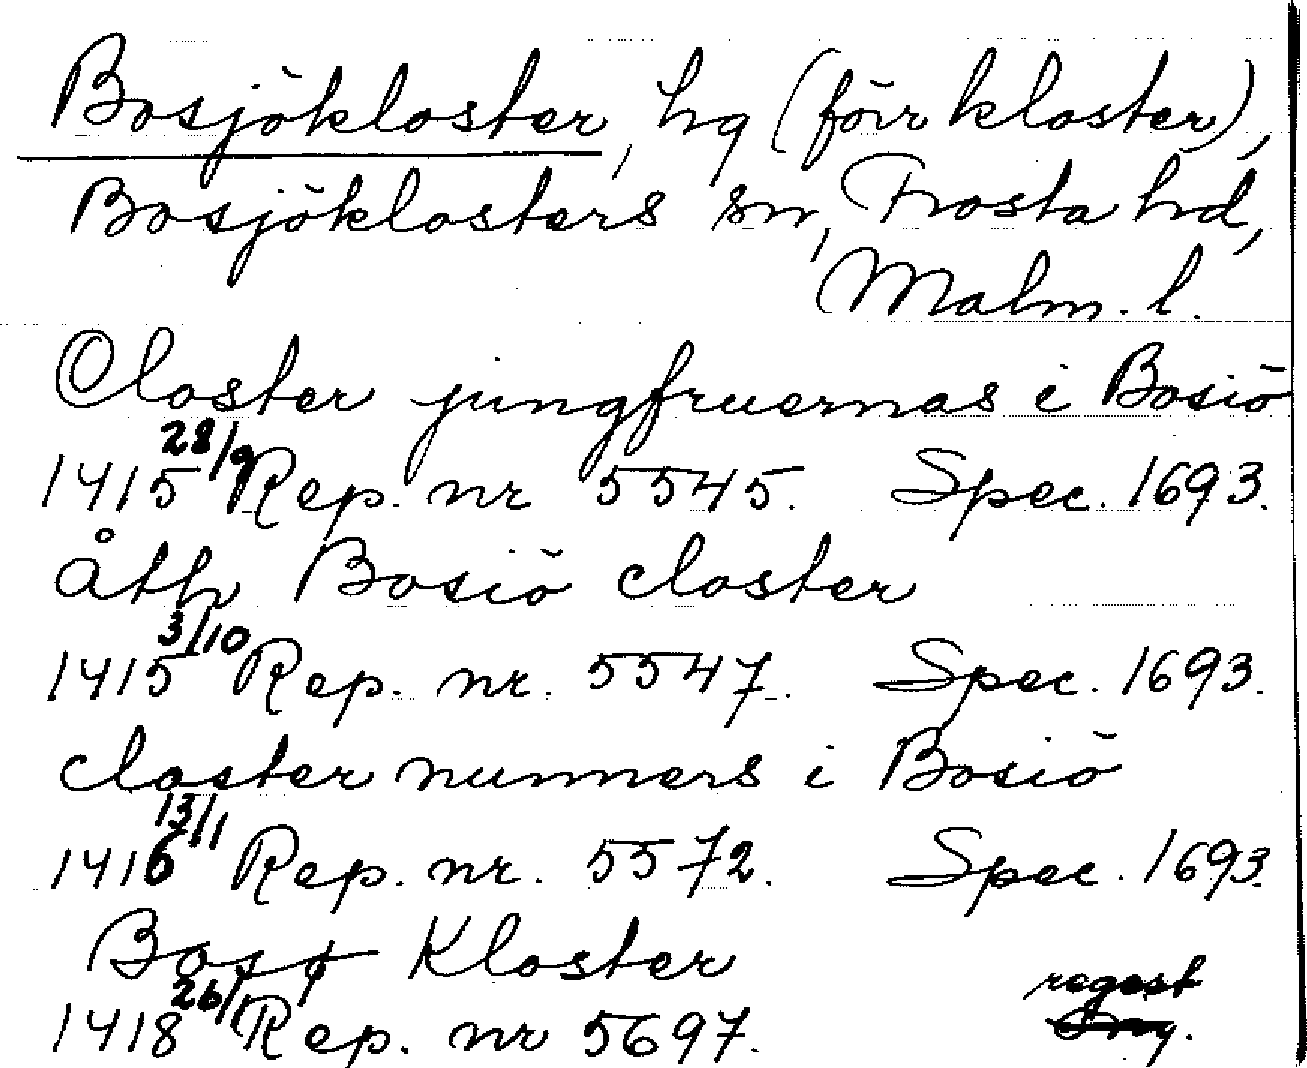 Bosjökloster, hg (förr kloster),
Bosjöklosters sn, Frosta hd,
Malm. l.
Closter jungfruernas i Bosiö
1415 28/9 Rep. nr 5545. Spec. 1693.
åth Bosiö closter
1415 3/10 Rep. nr. 5547. Spec. 1693.
closter nunners i Bosiö
1416 13/1 Rep. nr. 5572. Spec. 1693.
Bosø Kloster
regest
1418 26/1 Rep. nr 5697.